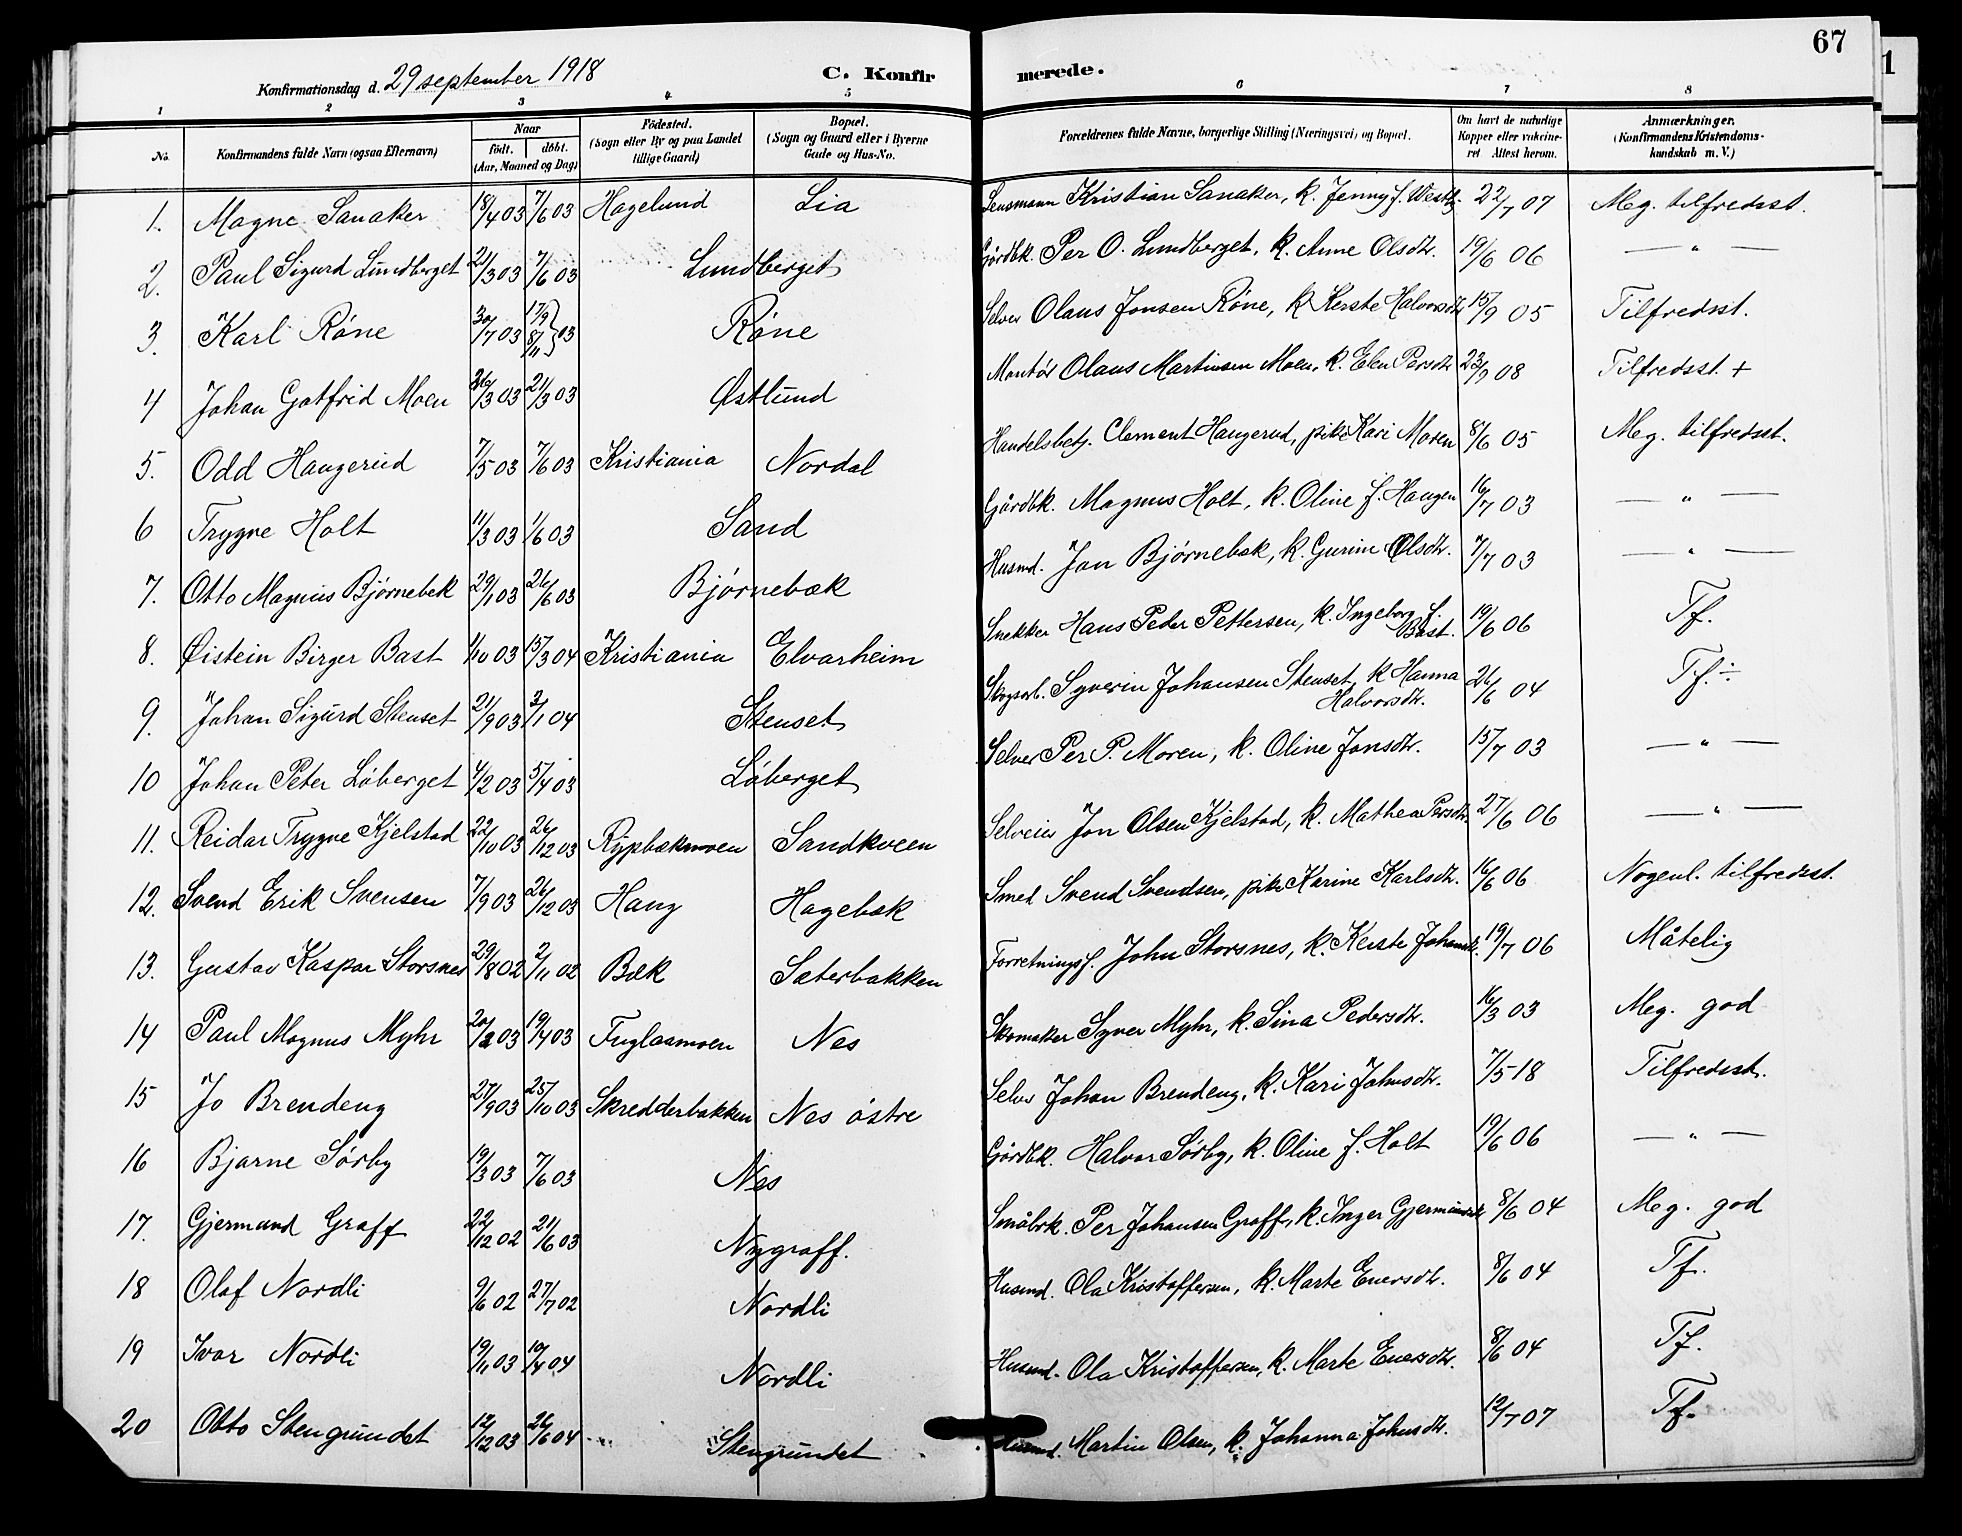 67
1
Konfirmationsdag d. 29 september 1918 C. Konfirmerede.
1 2 3 4 5 6 7 8
No. Konfirmandens fulde Navn (ogsaa Efternavn) Naar født. døbt. (Aar, Maaned og Dag) Fødested. (Sogn eller By og paa Landet tillige Gaard) Bopæl. (Sogn og Gaard eller i Byerne Gade og Hus-No. Forældrenes fulde Navne, borgerlige Stilling (Næringsvei) og Bopæl. Om havt de naturlige Kopper eller vakcineret Attest herom. Anmærkninger. (Konfirmandens Kristendomskundskab m. V.)
1. Magne Sanaker 18/4 03 7/6 03 Hagelund Lia Lensmann Kristian Sanaker, k. Jenny f. 22/7 07 Meg. tilfredsst.
2. Paul Sigurd Lundberget 21/3 03 7/6 03 Lundberget Gårdbk. Per O. Lundberget, k. Anne Olsdtr. 19/6 06 — " —
3. Karl Røne 30/7 03 17/9 8/11 } 03 Røne Selveier Olaus Jonsen Røne, k. Kerste Halvorsdtr. 15/9 05 Tilfredsst.
4 Johan Gotfrid Moen 26/3 03 21/3 03 Østlund Montør Olaus Martinsen Moen, k. Elen Persdtr. 23/9 08 Tilfredsst. +
5. Odd Haugerud 7/5 03 7/6 03 Kristiania Nordal Handelsbetj. Clement Haugerud, pike Kari Moren 8/6 05 Meg. tilfredsst.
6 Trygve Holt 11/3 03 1/6 03 Sand Gårdbk. Magnus Holt, k. Oline f. Haugen 16/7 03 — " —
7. Otto Magnus Bjørnebek 29/1 03 26/6 03 Bjørnebæk Husmd. Jon Bjørnebæk, k. Gurine Olsdtr. 7/7 03 — " —
8. Øistein Birger Bast 1/10 03 15/3 04 Kristiania Elvarheim Snekker Hans Peder Pettersen, k. Ingeborg f. Bast. 19/6 06 Tf.
9. Johan Sigurd Stenset 21/9 03 3/1 04 Stenset Skogsarb. Syverin Johansen Stenset, k Hanna Halvorsdtr. 26/6 04 Tf. ÷
10 Johan Peter Løberget 4/2 03 5/4 03 Løberget Selveier Per P. Moren, k. Oline Jonsdtr. 15/7 03 — " —
11. Reidar Trygve Kjelstad 22/10 03 26/12 03 Rypbækmoen Sandkveen Selveier Jon Olsen Kjelstad, k. Mathea Persdtr. 27/6 06 — " —
12. Svend Erik Svensen 7/9 03 26/12 03 Haug Hagebæk Smed Svend Svendsen, pike Karine Karlsdtr. 16/6 06 Nogenl. tilfredsst.
13. Gustav Kaspar Storsnes 29/8 02 2/11 02 Bæk Sæterbakken Forretningsf. John Storsnes, k. Kerste Johansdtr. 19/7 06 Måtelig
14 Paul Magnus Myhr 20/2 03 19/4 03 Fuglasmoen Nes Skomaker Syver Myhr, k. Sina Pedersdtr. 16/3 03 Meg. god
15 Jo Brendeng 27/9 03 25/10 03 Skredderbakken Nes østre Selveier Johan Brendeng, k. Kari Johnsdtr. 7/5 18 Tilfredsst.
16 Bjarne Sørby 19/3 03 7/6 03 Nes Gårdbk. Halvor Sørby, k. Oline f. Holt 19/6 06 — " —
17. Gjermund Graff 22/12 02 21/6 03 Nygraff. Småbrk. Per Johansen Graff, k. Inger Gjermundsdtr. 8/6 04 Meg. god
18 Olaf Nordli 9/6 02 27/7 02 Nordli Husmd. Ola Kristoffersen, k. Marte Enersdtr. 8/6 04 Tf.
19 Ivar Nordli 19/11 03 10/4 04 Nordli Husmd. Ola Kristoffersen, k. Marte Enersdtr. 8/6 04 Tf.
20 Otto Stengrundet 12/12 03 26/6 04 Stengrundet Husmd. Martin Olsen, k. Johanna Johnsdtr. 12/7 07 Tf.